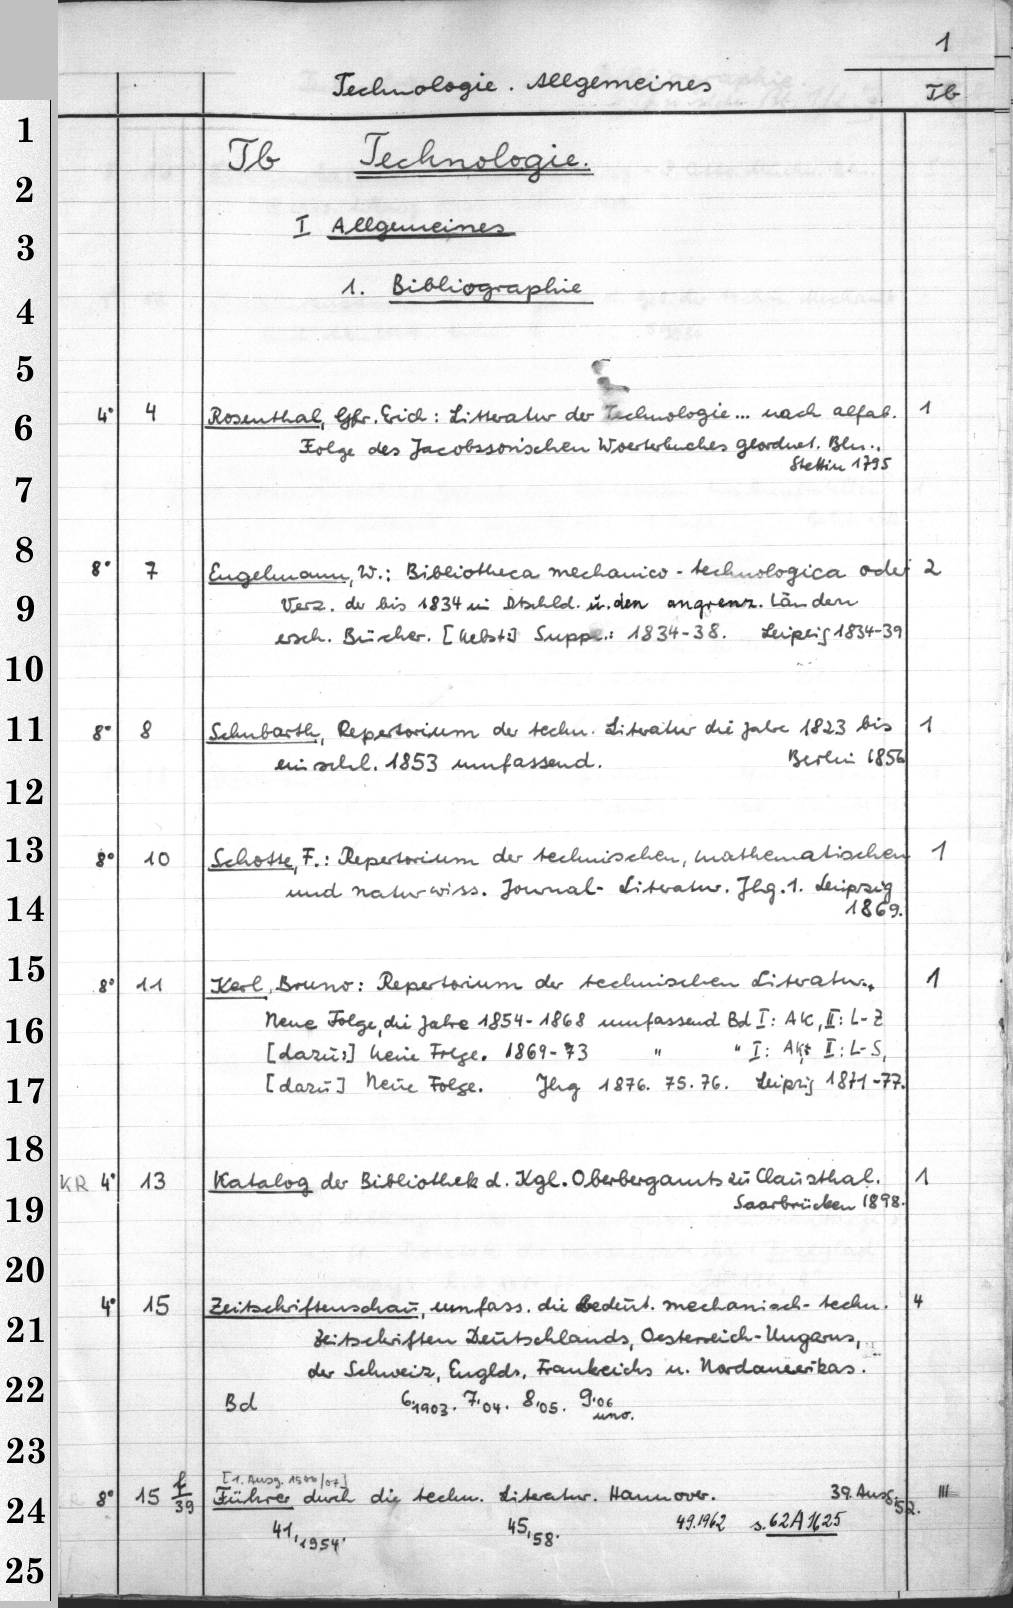 1
Technologie. Allgemeines
Tb
Tb Technologie.
I Allgemeines
1. Bibliographie
4° 4 Rosenthal, Gfr. Erich: Litteratur der Technologie... nach alfab. 1
Folge des Jacobssonischen Woerterbuches geordnet. Bln.,
Stettin 1795
8° 7 Engelmann, W.: Bibliotheca mechanico-technologica oder 2
Verz. der bis 1834 in Dtschld. u. den angrenz. Ländern
ersch. Bücher. [Nebst:] Suppl.: 1834-38. Leipzig 1834-39
8° 8 Schubarth, Repertorium der techn. Literatur die Jahre 1823 bis 1
einschl. 1853 umfassend. Berlin 1856
8° 10 Schotte, F.: Repertorium der technischen, mathematischen 1
und naturwiss. Journal-Literatur. Jhg. 1. Leipzig
1869.
8° 11 Kerl, Bruno: Repertorium der technischen Literatur. 1
Neue Folge, die Jahre 1854-1868 umfassend Bd I: A-K, II: L-Z
[dazu:] Neue Folge. 1869-73 " " I: A-K, II: L-S,
[dazu] Neue Folge. Jhg 1876. 75. 76. Leipzig 1871-77.
KR 4° 13 Katalog der Bibliothek d. Kgl. Oberbergamts zu Clausthal. 1
Saarbrücken 1898.
4° 15 Zeitschriftenschau, umfass. die bedeut. mechanisch-techn. 4
Zeitschriften Deutschlands, Oesterreich-Ungarns,
der Schweiz, Englds, Frankreichs u. Nordamerikas.
Bd 6,1903. 7,04. 8,05. 9,06
uno.
[1. Ausg. 1506/07]
8° 15 f/39 Führer durch die techn. Literatur. Hannover. 39. Ausg. 52. III
41,1954. 45,58. 49.1962 s. 62A1625
1
2
3
4
5
6
7
8
9
10
11
12
13
14
15
16
17
18
19
20
21
22
23
24
25